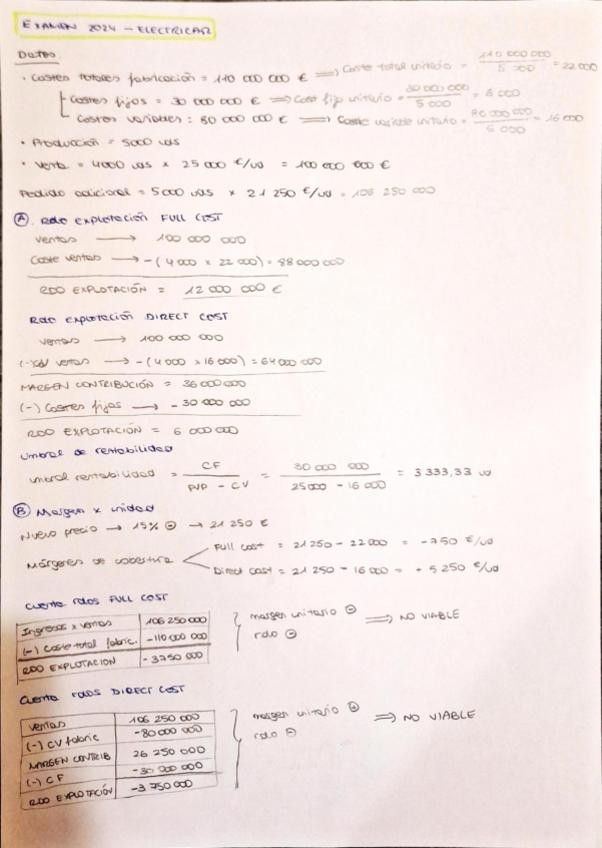 EXAMEN 2024 - ELECTRICAR
Datos
• Costes totales fabricación = 110 000 000 € ⟹ Coste total unitario = 110 000 000 / 5 000 = 22 000
Costes fijos = 30 000 000 € ⟹ Cost fijo unitario = 30 000 000 / 5 000 = 6 000
Costes variables : 80 000 000 € ⟹ Coste variable unitario = 80 000 000 / 5 000 = 16 000
• Producción = 5000 uds
• Venta = 4000 uds x 25 000 €/ud = 100 000 000 €
Pedido adicional = 5 000 uds x 21 250 €/ud = 106 250 000
Ⓐ. Rdo explotación FULL COST
Ventas ⟶ 100 000 000
Coste ventas ⟶ -(4 000 x 22 000) = 88 000 000
RDO EXPLOTACIÓN = 12 000 000 €
Rdo explotación DIRECT COST
Ventas ⟶ 100 000 000
(-) CV ventas ⟶ -(4 000 x 16 000) = 64 000 000
MARGEN CONTRIBUCIÓN = 36 000 000
(-) Costes fijos ⟶ -30 000 000
RDO EXPLOTACIÓN = 6 000 000
Umbral de rentabilidad
Umbral rentabilidad = CF / PVP - CV = 30 000 000 / 25 000 - 16 000 = 3 333,33 ud
Ⓑ Margen x unidad
Nuevo precio → 15% ⊖ → 21 250 €
Márgenes de cobertura
Full cost = 21 250 - 22 000 = -750 €/ud
Direct cost = 21 250 - 16 000 = + 5 250 €/ud
Cuenta rdos FULL COST
Ingresos x ventas 106 250 000
(-) Coste total fabric. -110 000 000
RDO EXPLOTACION -3 750 000
margen unitario ⊖ ⟹ NO VIABLE
rdo ⊖
Cuenta rdos DIRECT COST
Ventas 106 250 000
(-) CV fabric -80 000 000
MARGEN CONTRIB 26 250 000
(-) CF -30 000 000
RDO EXPLOTACIÓN -3 750 000
margen unitario ⊕ ⟹ NO VIABLE
rdo ⊖